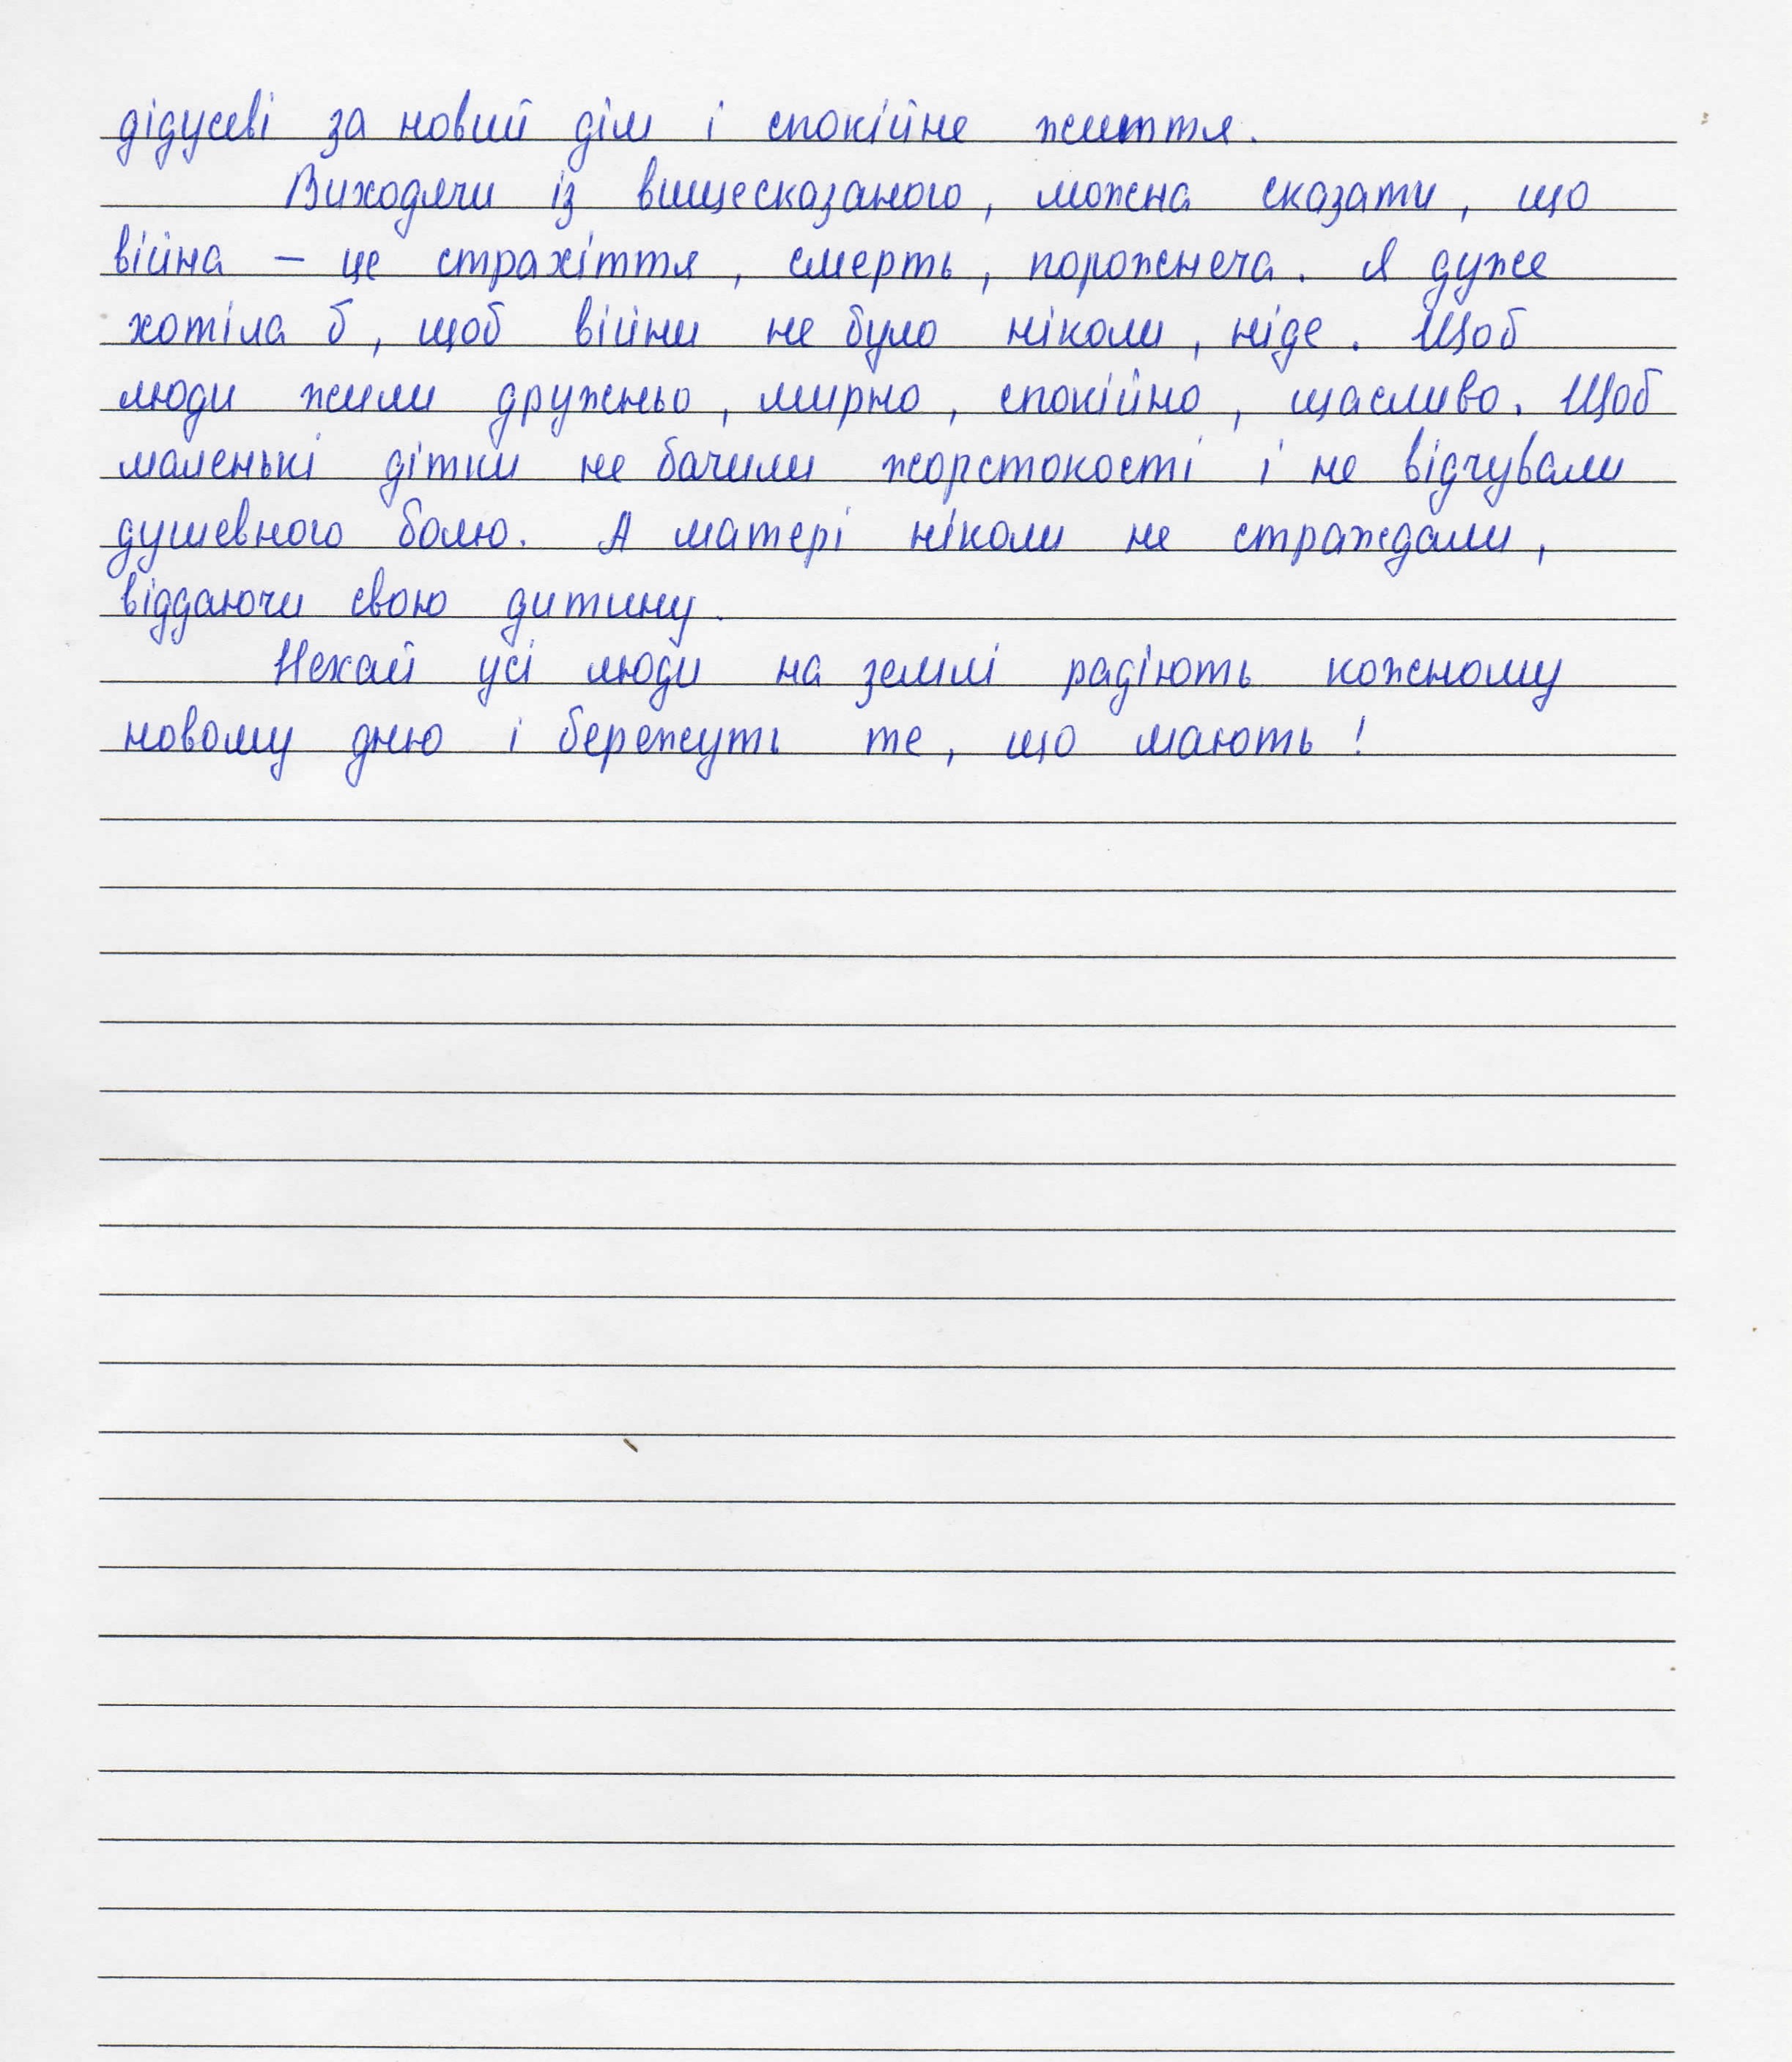 дідусеві за новий дім і спокійне життя.
Виходячи із вищесказаного, можна сказати, що
війна – це страхіття, смерть, порожнеча. Я дуже
хотіла б, щоб війни не було ніколи, ніде. Щоб
люди жили дружньо, мирно, спокійно, щасливо. Щоб
маленькі дітки не бачили жорстокості і не відчували
душевного болю. А матері ніколи не страждали,
віддаючи свою дитину.
Нехай усі люди на землі радіють кожному
новому дню і бережуть те, що мають!